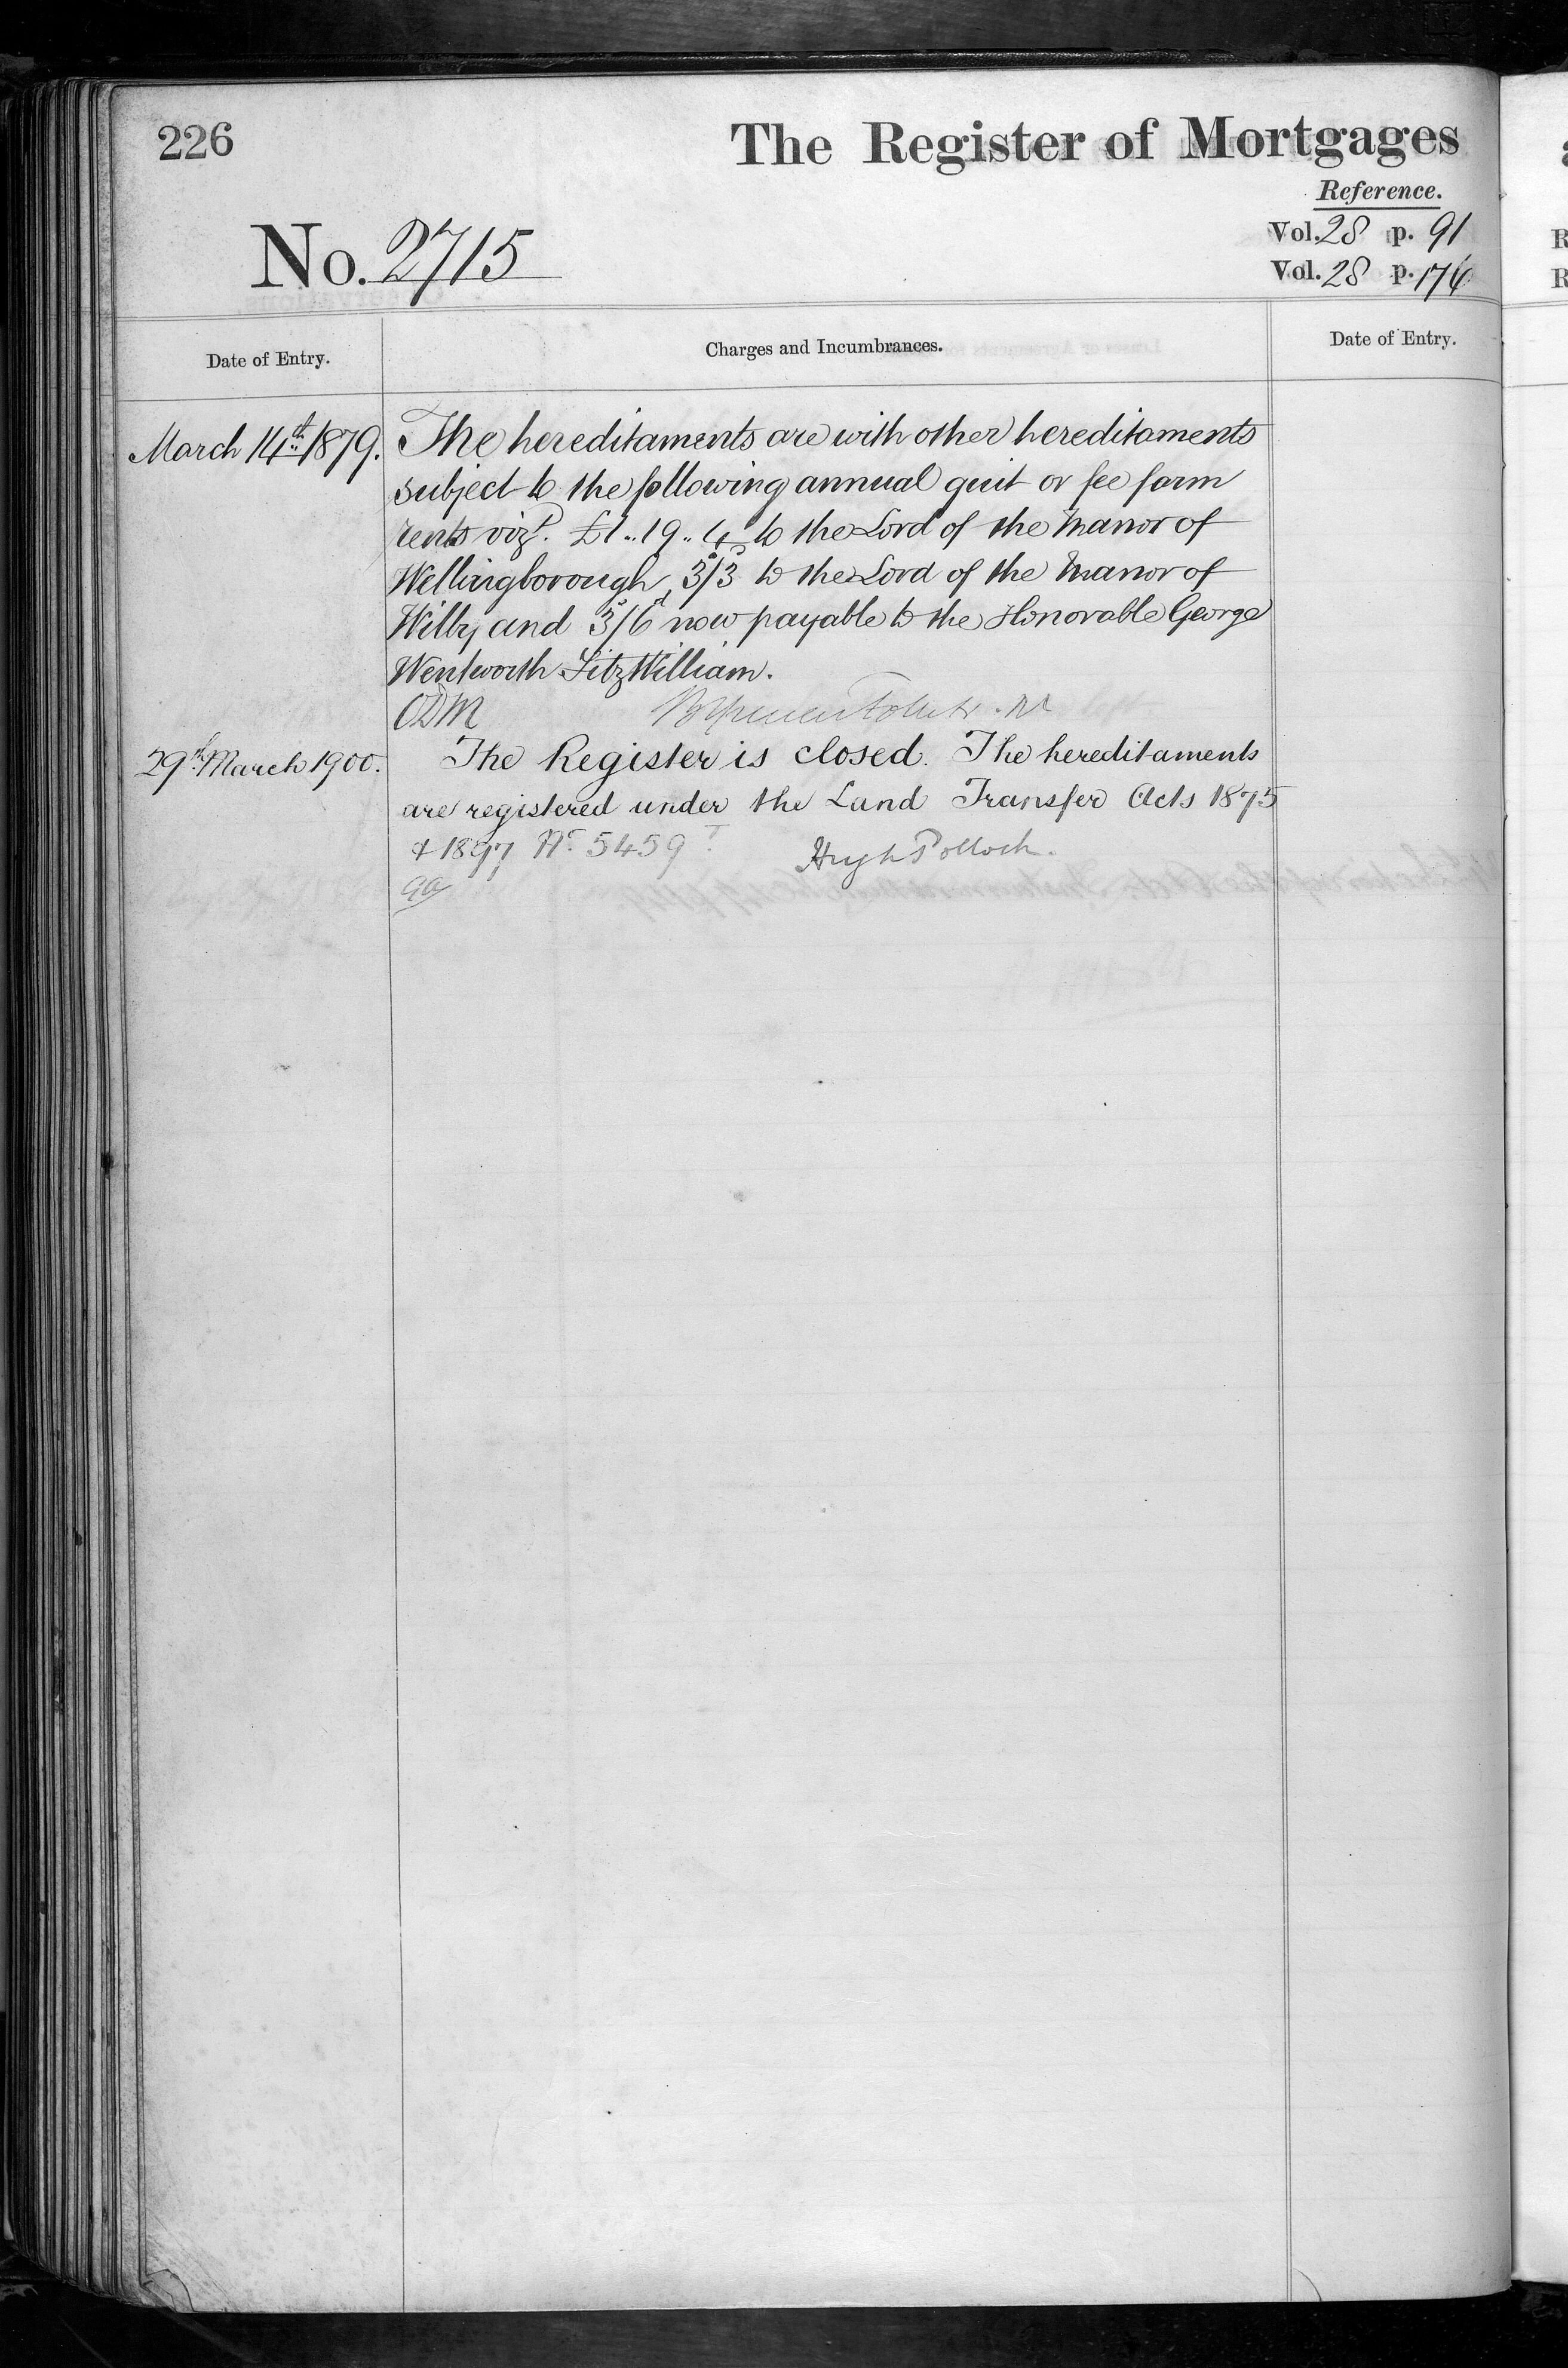 226
The Register of Mortgages
Reference.
No. 2715
Vol. 28 p. 91
Vol. 28 p. 176
Date of Entry.
Charges and Incumbrances.
Date of Entry.
March 14th 1879.
The hereditaments are with other hereditaments
subject to the following annual quit or fee farm
rents vizt. £1..19..4 to the Lord of the Manor of
Wellingborough, 3s/3 to the Lord of the Manor of
Wilby and 3s/6d now payable to the Honorable George
Wentworth FitzWilliam.
ODM
29th March 1900.
The Register is closed. The hereditaments
are registered under the Land Transfer Acts 1875
& 1897 No. 5459
Hugh Pollock.